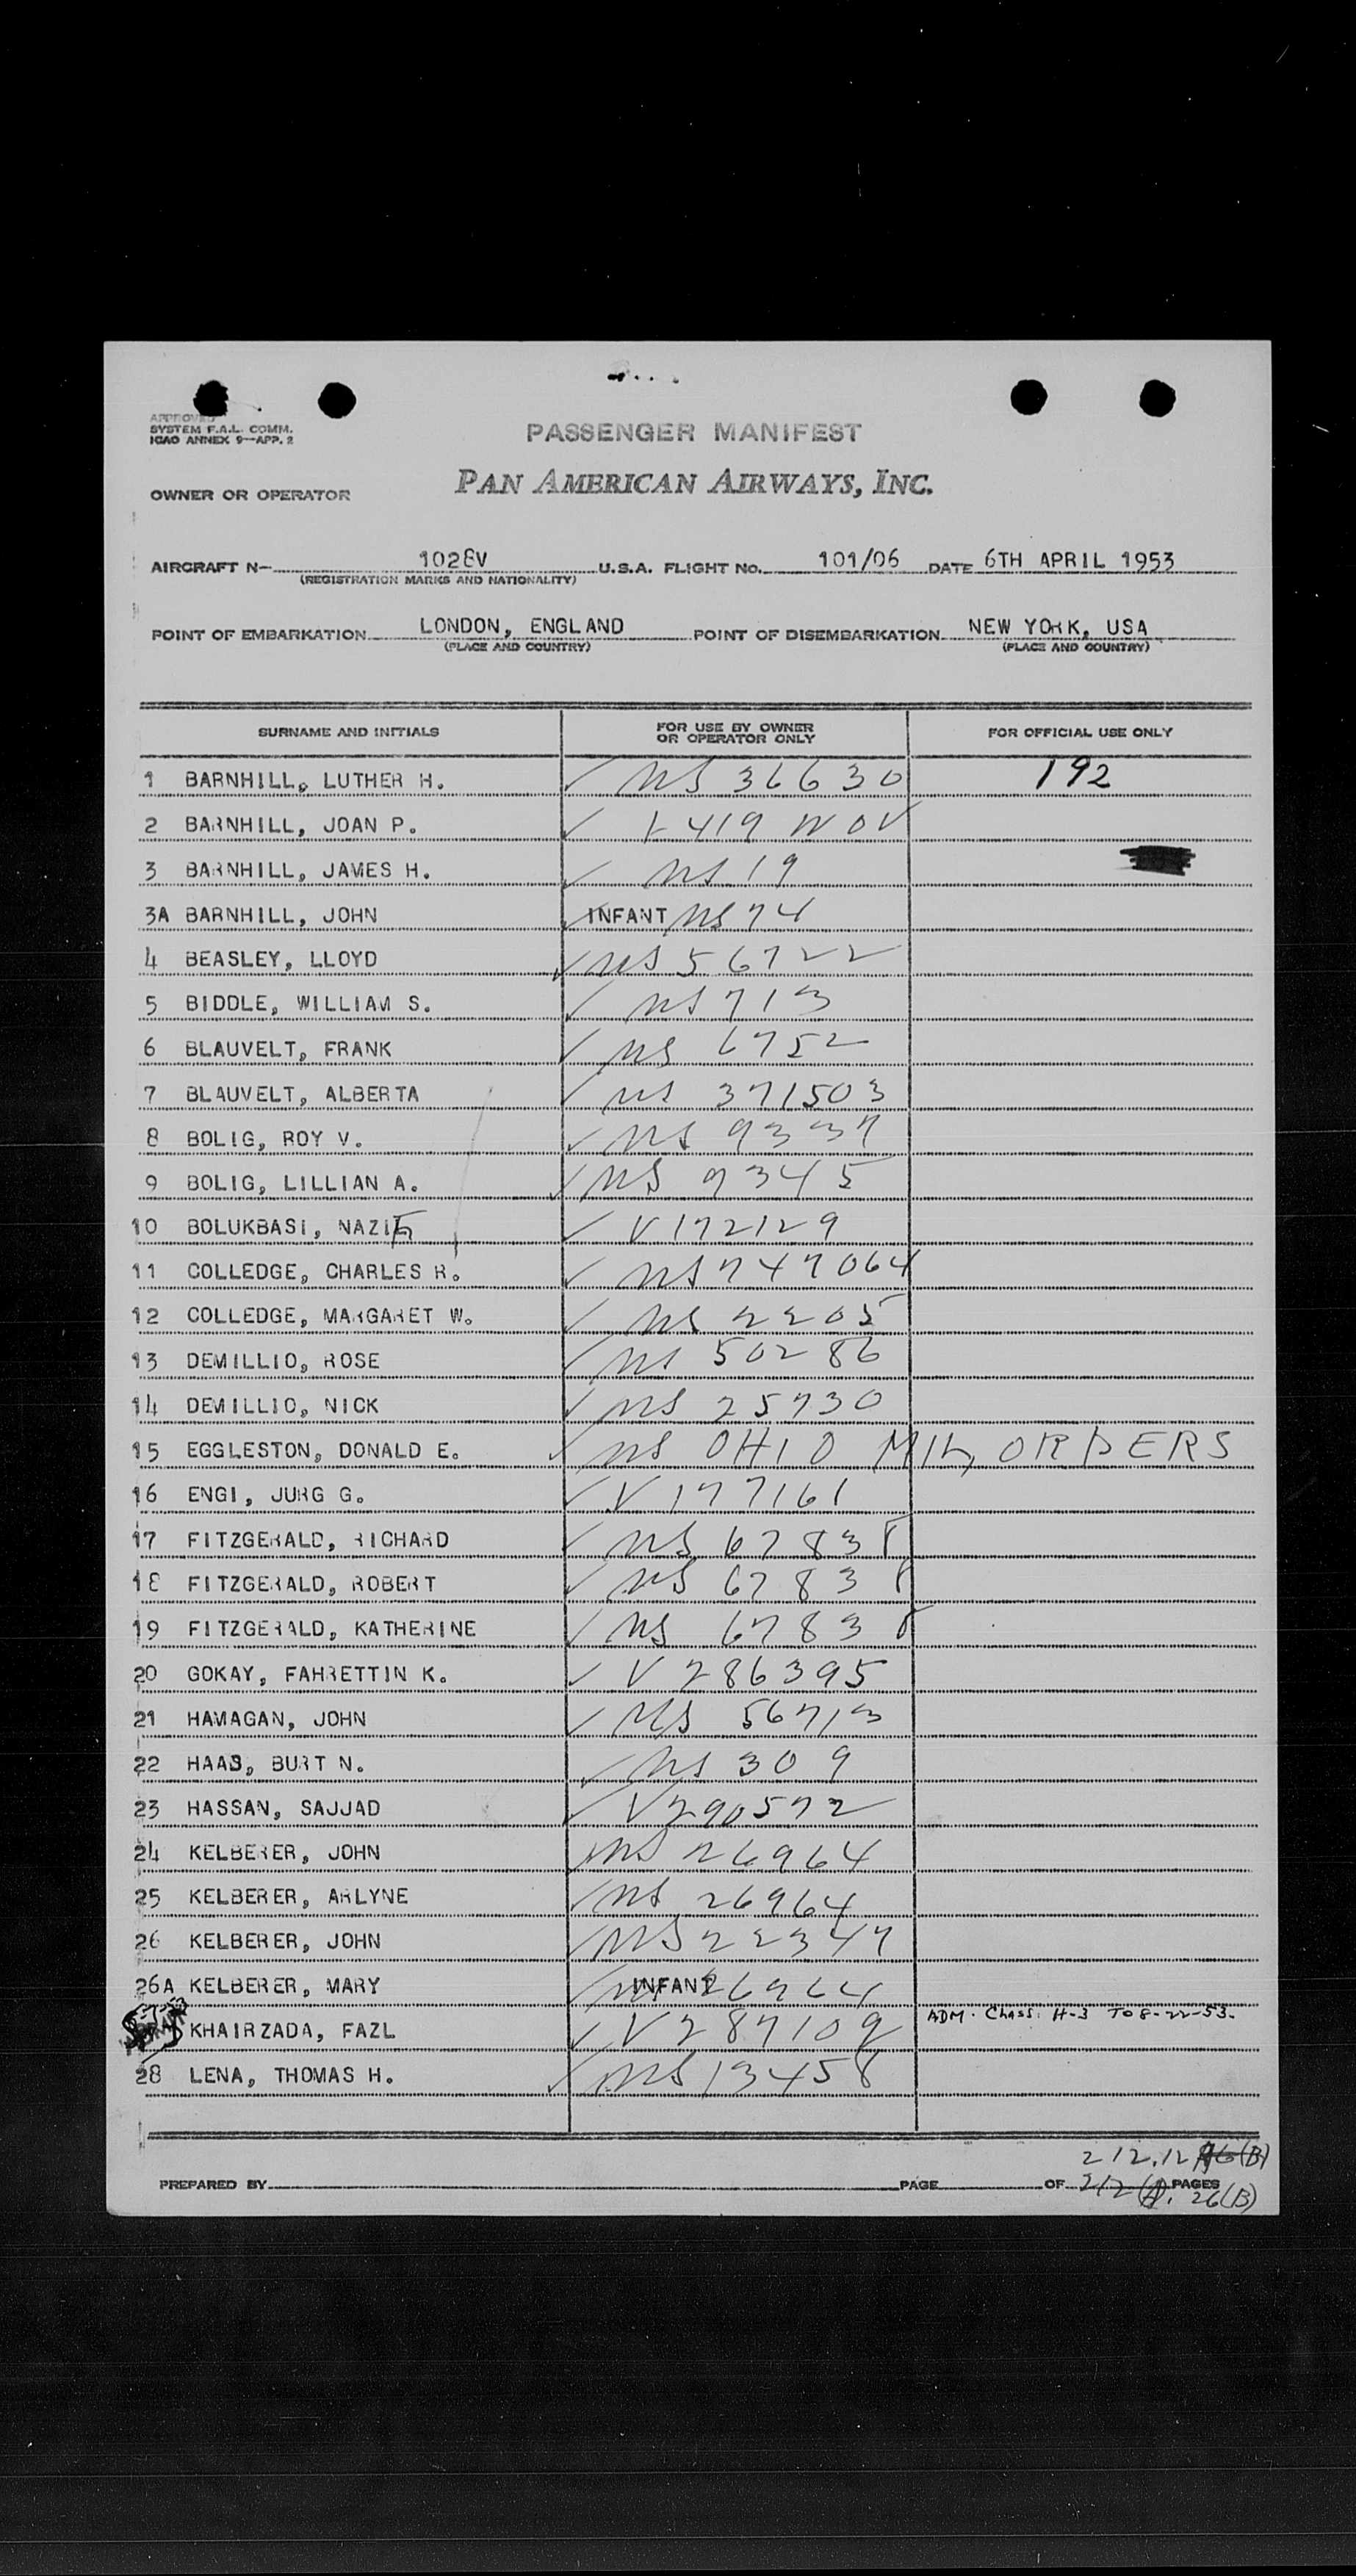 APPROVED
SYSTEM F.A.L. COMM.
ICAO ANNEX 9—APP. 2
PASSENGER MANIFEST
PAN AMERICAN AIRWAYS, INC.
OWNER OR OPERATOR
AIRCRAFT N- 1028V U.S.A. FLIGHT NO. 101/06 DATE 6TH APRIL 1953
(REGISTRATION MARKS AND NATIONALITY)
POINT OF EMBARKATION LONDON, ENGLAND POINT OF DISEMBARKATION NEW YORK, USA
(PLACE AND COUNTRY) (PLACE AND COUNTRY)
SURNAME AND INITIALS FOR USE BY OWNER OR OPERATOR ONLY FOR OFFICIAL USE ONLY
1 BARNHILL, LUTHER H. ✓ NS 36630 192
2 BARNHILL, JOAN P. ✓ V419 NOV
3 BARNHILL, JAMES H. ✓ NS 19
3A BARNHILL, JOHN ✓ INFANT NS 74
4 BEASLEY, LLOYD ✓ NS 56722
5 BIDDLE, WILLIAM S. ✓ NS 713
6 BLAUVELT, FRANK ✓ NS 6752
7 BLAUVELT, ALBERTA ✓ NS 371503
8 BOLIG, ROY V. ✓ NS 9337
9 BOLIG, LILLIAN A. ✓ NS 9345
10 BOLUKBASI, NAZIF ✓ V172129
11 COLLEDGE, CHARLES R. ✓ NS 747064
12 COLLEDGE, MARGARET W. ✓ NS 2205
13 DEMILLIO, ROSE ✓ NS 50286
14 DEMILLIO, NICK ✓ NS 25730
15 EGGLESTON, DONALD E. ✓ NS OHIO MIL, ORDERS
16 ENGI, JURG G. ✓ V177161
17 FITZGERALD, RICHARD ✓ NS 67838
18 FITZGERALD, ROBERT ✓ NS 67838
19 FITZGERALD, KATHERINE ✓ NS 67838
20 GOKAY, FAHRETTIN K. ✓ V 286395
21 HAMAGAN, JOHN ✓ NS 56713
22 HAAS, BURT N. ✓ NS 309
23 HASSAN, SAJJAD ✓ V290572
24 KELBERER, JOHN NS 26964
25 KELBERER, ARLYNE ✓ NS 26964
26 KELBERER, JOHN ✓ NS 22347
26A KELBERER, MARY ✓ NS INFANT 26964
KHAIRZADA, FAZL ✓ V 287109 ADM. CLASS. H-3 TO 8-22-53.
28 LENA, THOMAS H. ✓ NS 13458
212.12 (B)
PREPARED BY PAGE OF 212 (A). PAGES
26(B)